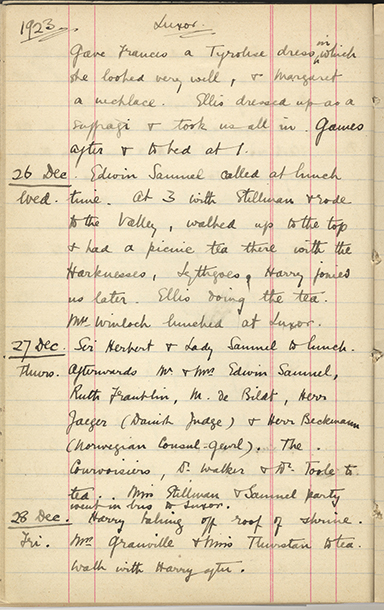 1923. Luxor.
Gave Frances a Tyrolese dress in which
she looked very well, & Margaret
a necklace. Ellis dressed up as a
suffragi & took us all in. Games
after & to bed at 1.
26 Dec. Edwin Samuel called at lunch
Wed. time. At 3 with Stillman & rode
to the Valley, walked up to the top
& had a picnic tea there with the
Harknesses, Lythgoes, Harry joined
us later. Ellis doing the tea.
Mr. Winlock lunched at Luxor.
27 Dec. Sir Herbert & Lady Samuel to lunch.
Thurs. Afterwards Mr & Mrs Edwin Samuel,
Ruth Franklin, M. de Bildt, Herr
Jaeger (Danish Judge) & Herr Beckmann
(Norwegian Consul-Genrl). The
Courvoisiers, Dr. Walker & Dr. Toole to
tea. Miss Stillman & Samuel party
went in bus to Luxor.
28 Dec. Harry taking off roof of shrine.
Fri. Mrs. Granville & Miss Thurston to tea.
Walk with Harry after.